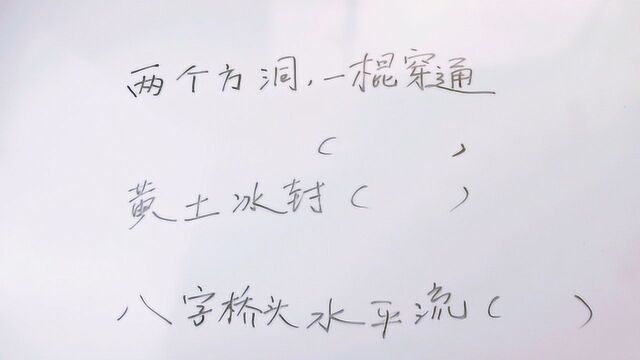 两个方洞,一棍穿通
(      )
黄土冰封(      )
八字桥头水平流(      )